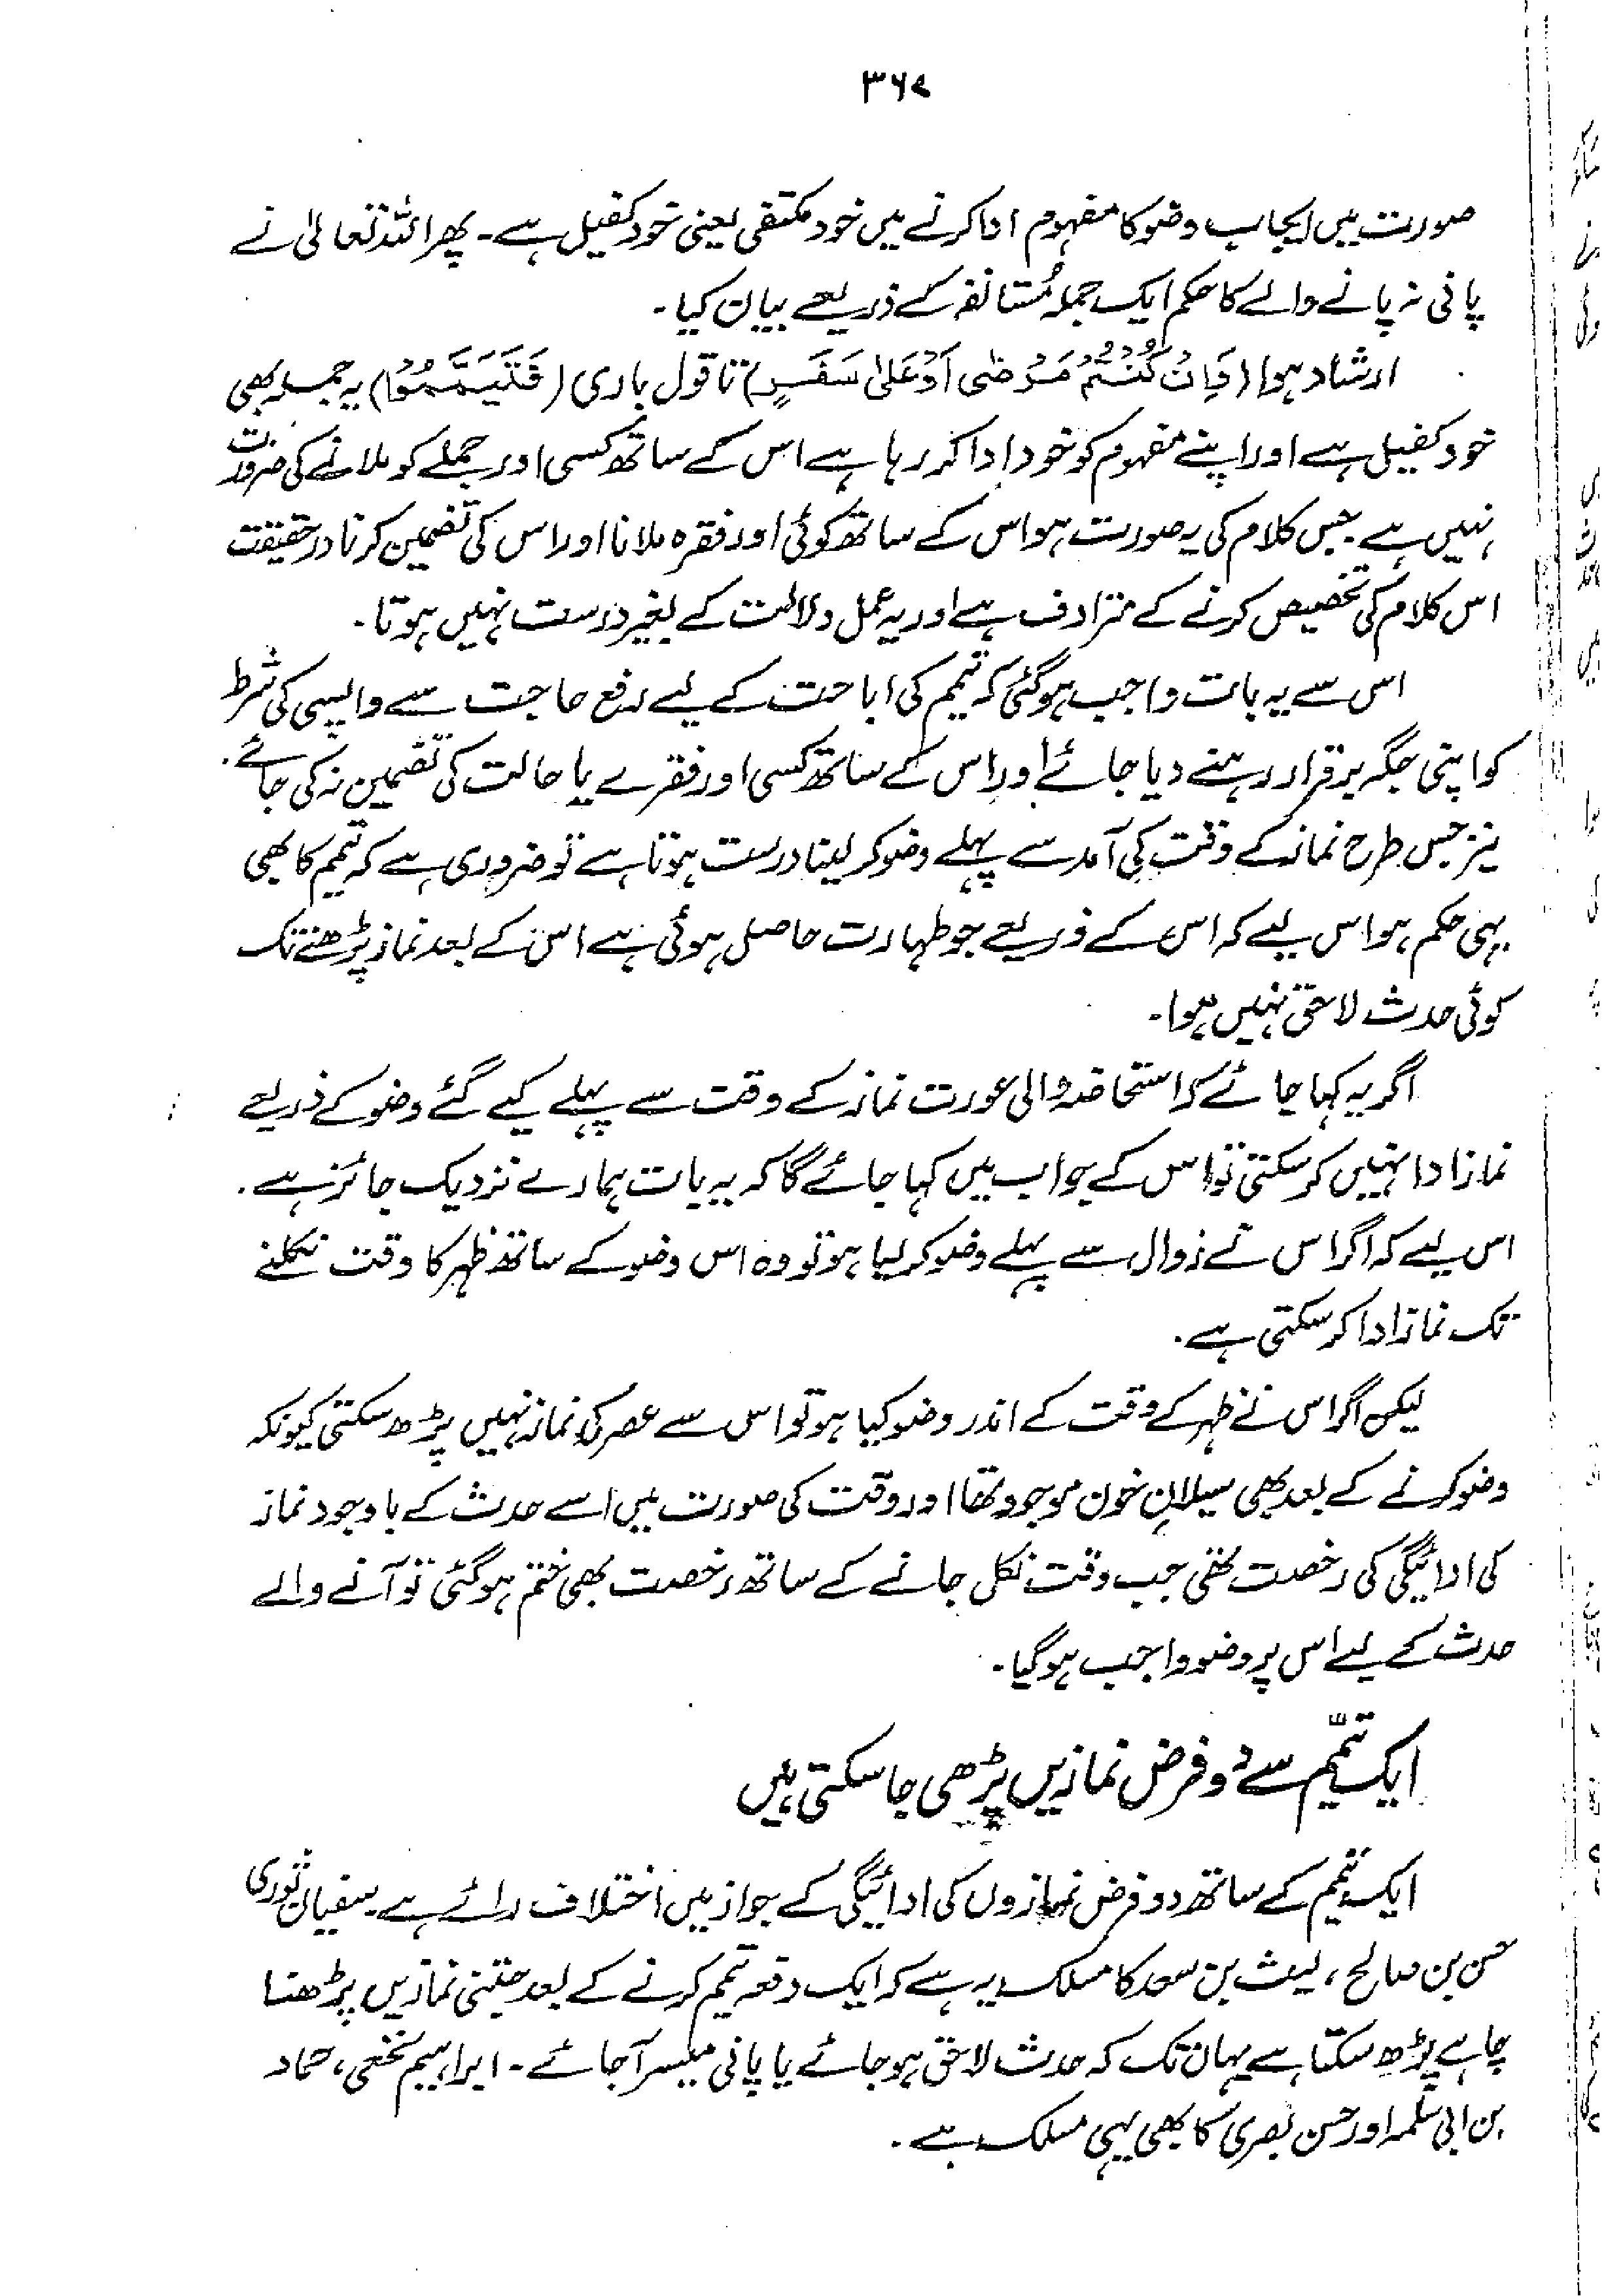 ۳۶۷
صورت میں ایجاب وضو کا مفہوم ادا کرنے میں خود مکتفی یعنی خود کفیل ہے۔ پھر اللہ تعالیٰ نے
پانی نہ پانے والے کا حکم ایک جملہ مُستانفہ کے ذریعے بیان کیا۔
ارشاد ہوا (وَاِنْ كُنْتُمْ مَرْضٰى اَوْ عَلٰى سَفَرٍ) تا قول باری (فَتَيَمَّمُوْا) یہ جملہ بھی
خود کفیل ہے اور اپنے مفہوم کو خود ادا کر رہا ہے اس کے ساتھ کسی اور جملے کو ملانے کی ضرورت
نہیں ہے جس کلام کی یہ صورت ہو اس کے ساتھ کوئی اور فقرہ ملانا اور اس کی تضمین کرنا درحقیقت
اس کلام کی تخصیص کرنے کے مترادف ہے اور یہ عمل دلالت کے بغیر درست نہیں ہوتا۔
اس سے یہ بات واجب ہوگئی کہ تیمم کی اباحت کے لیے رفع حاجت سے واپسی کی شرط
کو اپنی جگہ برقرار رہنے دیا جائے اور اس کے ساتھ کسی اور فقرے یا حالت کی تضمین نہ کی جائے۔
نیز جس طرح نماز کے وقت کی آمد سے پہلے وضو کر لینا درست ہوتا ہے تو ضروری ہے کہ تیمم کا بھی
یہی حکم ہو اس لیے کہ اس کے ذریعے جو طہارت حاصل ہوئی ہے اس کے بعد نماز پڑھنے تک
کوئی حدث لاحق نہیں ہوا۔
اگر یہ کہا جائے کہ استحاضہ والی عورت نماز کے وقت سے پہلے کیے گئے وضو کے ذریعے
نماز ادا نہیں کر سکتی تو اس کے جواب میں کہا جائے گا کہ یہ بات ہمارے نزدیک جائز ہے۔
اس لیے کہ اگر اس نے زوال سے پہلے وضو کر لیا ہو تو وہ اس وضو کے ساتھ ظہر کا وقت نکلنے
تک نماز ادا کر سکتی ہے۔
لیکن اگر اس نے ظہر کے وقت کے اندر وضو کیا ہو تو اس سے عصر کی نماز نہیں پڑھ سکتی کیونکہ
وضو کرنے کے بعد بھی سیلانِ خون موجود تھا اور وقت کی صورت میں اسے حدث کے باوجود نماز
کی ادائیگی کی رخصت تھی جب وقت نکل جانے کے ساتھ رخصت بھی ختم ہوگئی تو آنے والے
حدث کے لیے اس پر وضو واجب ہوگیا۔
ایک تیمّم سے دو فرض نمازیں پڑھی جا سکتی ہیں
ایک تیمم کے ساتھ دو فرض نمازوں کی ادائیگی کے جواز میں اختلاف رائے ہے۔ سفیان ثوری
حسن بن صالح، لیث بن سعد کا مسلک یہ ہے کہ ایک دفعہ تیمم کرنے کے بعد جتنی نمازیں پڑھنا
چاہے پڑھ سکتا ہے یہاں تک کہ حدث لاحق ہو جائے یا پانی میسر آجائے۔ ابراہیم نخعی، حماد
بن ابی سلمہ اور حسن بصری کا بھی یہی مسلک ہے۔